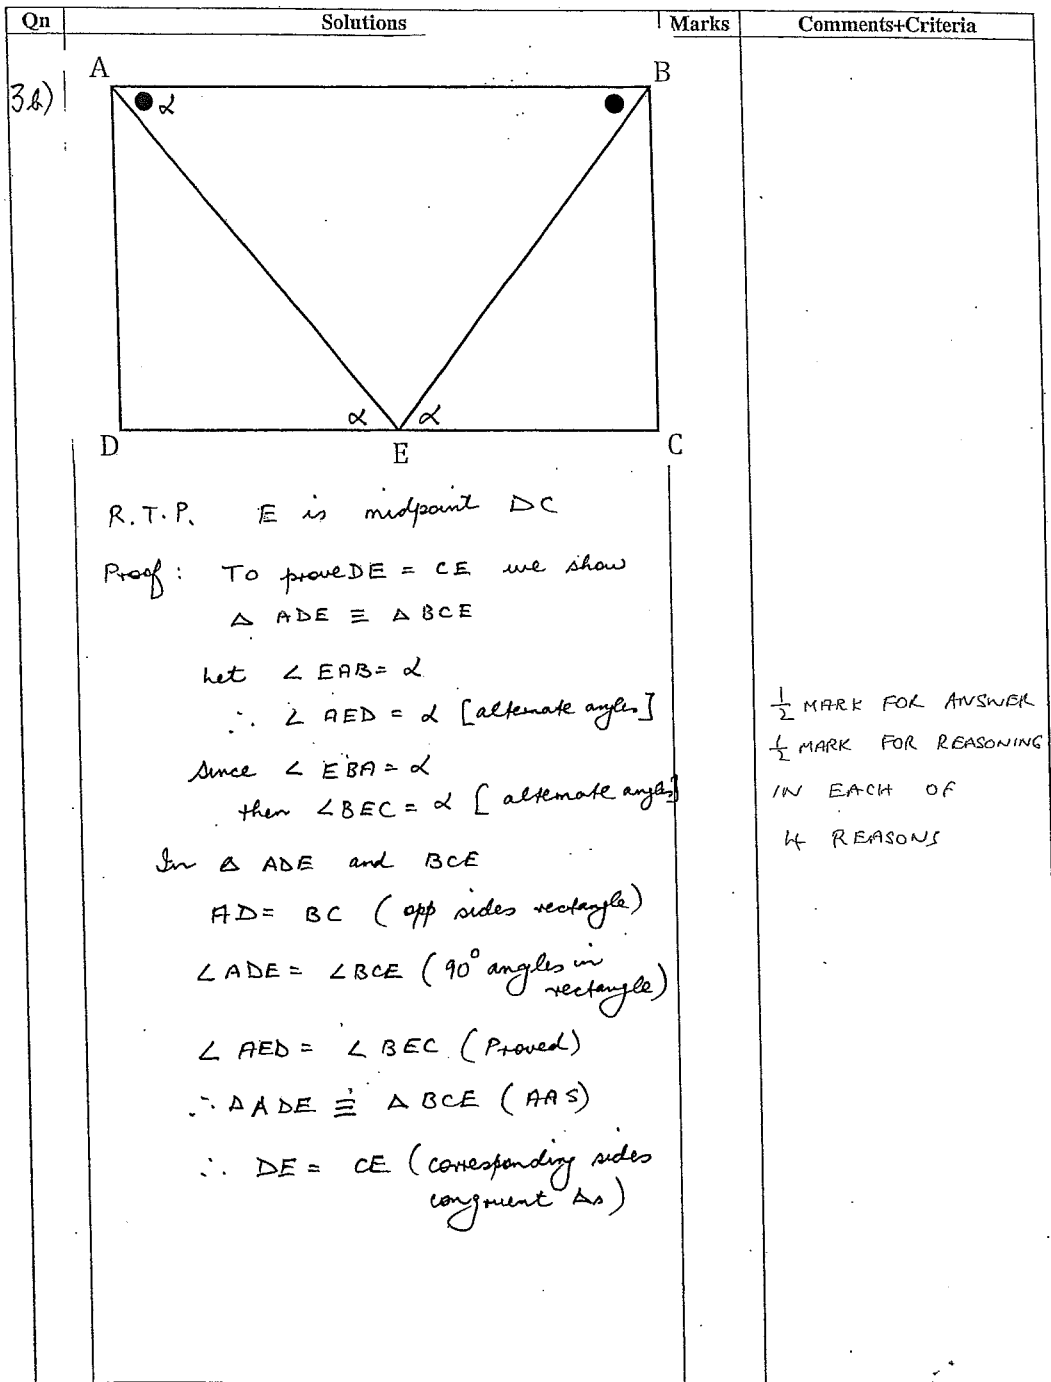 Qn Solutions Marks Comments+Criteria
A B
3b) α
α α
D E C
R.T.P. E is midpoint DC
Proof: To prove DE = CE we show
△ ADE ≡ △ BCE
Let ∠ EAB = α
∴ ∠ AED = α [alternate angles]
Since ∠ EBA = α
then ∠BEC = α [alternate angles]
In △ ADE and BCE
AD = BC (opp sides rectangle)
∠ ADE = ∠BCE (90° angles in
rectangle)
∠ AED = ∠ BEC (Proved)
∴ △ADE ≡ △ BCE (AAS)
∴ DE = CE (corresponding sides
congruent △s)
½ MARK FOR ANSWER
½ MARK FOR REASONING
IN EACH OF
4 REASONS